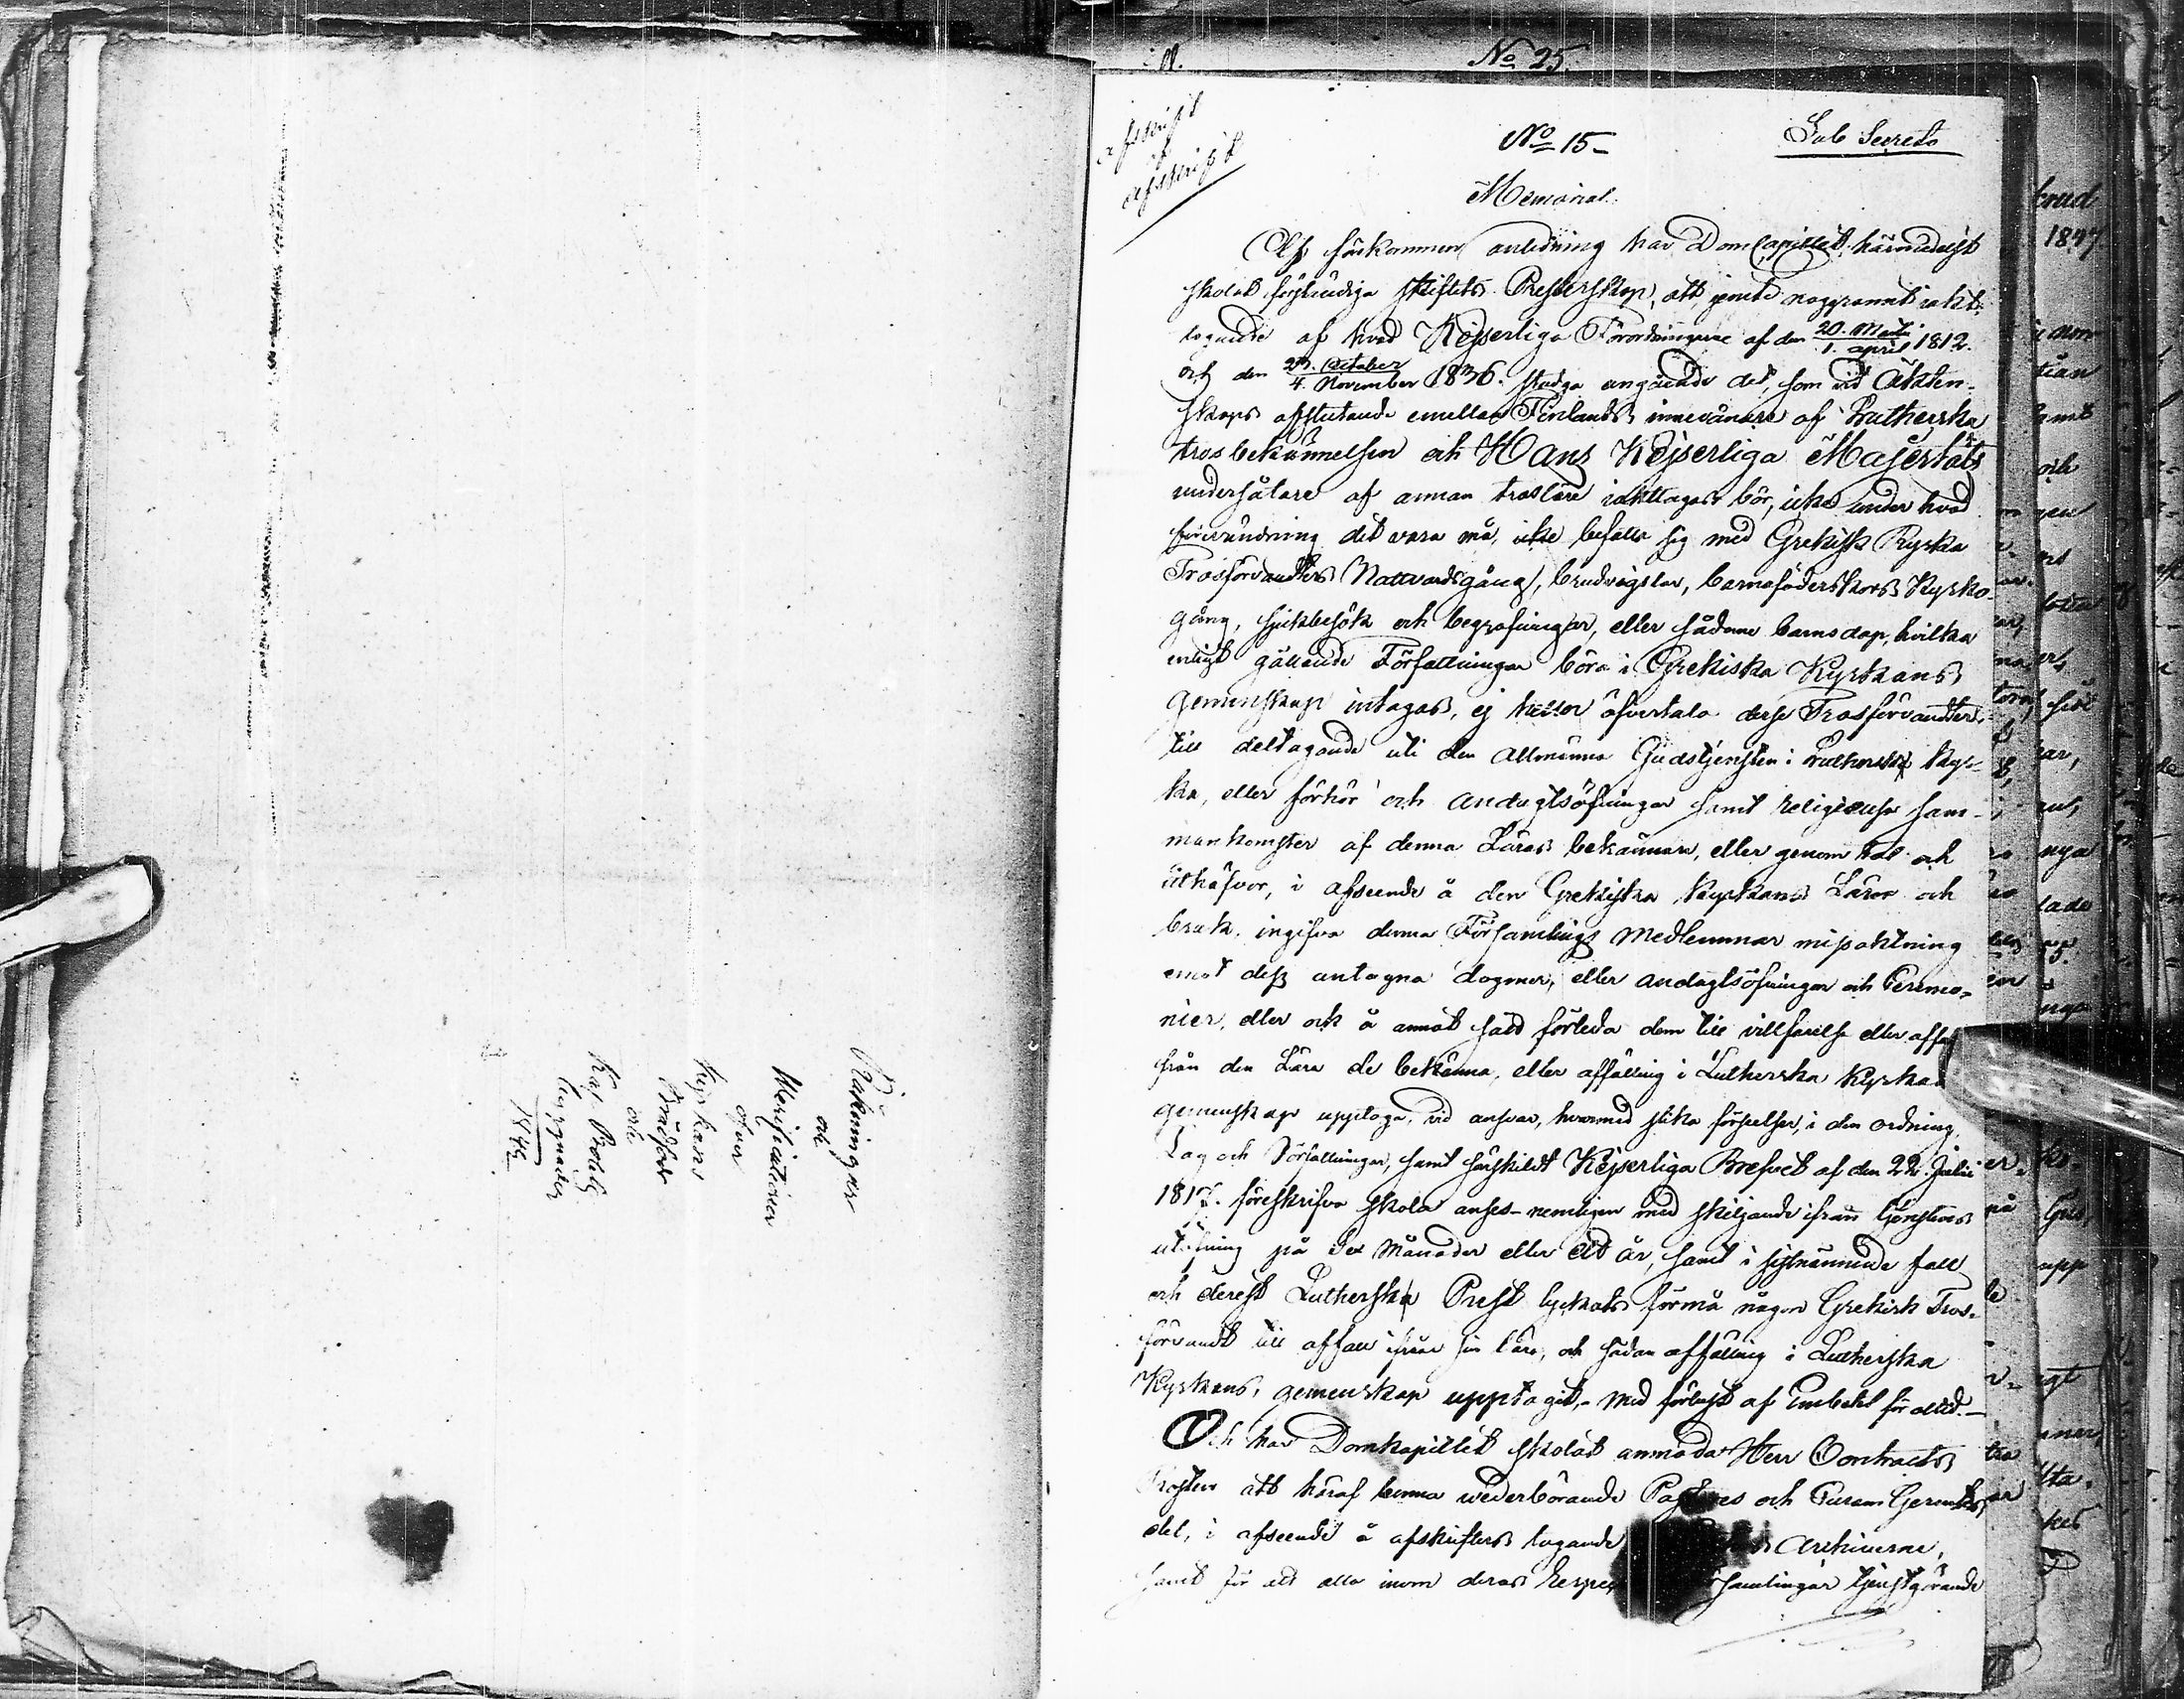 Räkningar
och
Verificationer
öfver
Kyrkans
Brädfodr
och
byggnader
1849
No 25.
afskrift
af
afskrift
No 15
Sub Secreto
Memorial.
Af förekommen anledning har DomCapitlet härmedelst
skolat förständiga Stiftets Presterskap, att, jemte noggrannt iakt-
tagande af hvad Kejserliga Förordningarne af den 20. Martii / 1. april 1812.
och den 23. October / 4. November 1836. stadga angående det, som vid Äkten-
skaps afslutande emellan Finlands innevånare af Lutherska
trosbekännelsen och Hans Kejserliga Majestäts
undersåtare af annan troslära iakttagas bör, icke under hvad
förevändning det vara må, icke befatta sig med Grekisk Ryska
Trosförvandters Nattvardsgång, brudvigslar, barnaföderskors Kyrko-
gång, sjukbesök och begrafningar, eller sådane barns dop, hvilka
enligt gällande Författningar böra i Grekiska Kyrkans
gemenskap intagas, ej heller öfvertala desse Trosförvandter
till deltagande uti den allmänna Gudstjensten i Luthersk Kyr-
ka, eller förhör och andagtsöfningar samt religieusa sam-
mankomster af denna Läras bekännare, eller genom tal och
åthäfvor, i afseende å den Grekiska Kyrkans Läror och
bruk, ingifva denna Församlings medlemmar misaktning
emot dess antagna dogmer, eller andagtsöfningar och Ceremo-
nier, eller ock å annat sätt förleda dem till villfarelse eller affall
från den Lära de bekänna, eller affälling i Lutherska Kyrkans
gemenskap upptaga, vid ansvar, hvarmed slika förseelser, i den ordning,
Lag och Författningar, samt särskildt Kejserliga Brefvet af den 22 Julii
1817. föreskrifva skola anses – nemligen med skiljande ifrån tjenstens
utöfning på Sex Månader eller ett år, samt i sistnämnde fall
och derest Luthersk Prest lyckats förmå någon Grekisk Tros-
förvandt till affall ifrån sin lära, och sådan affälling i Lutherska
Kyrkans, gemenskap upptagit, – med förlust af Embetet för alltid. –
Och har Domkapitlet skolat anmoda Herr Contracts
Prosten att häraf lemna wederbörande Pastores och
del, i afseende å afskrifters tagande Archiverne,
samt för att alla inom deras församlingar tjenstgörande